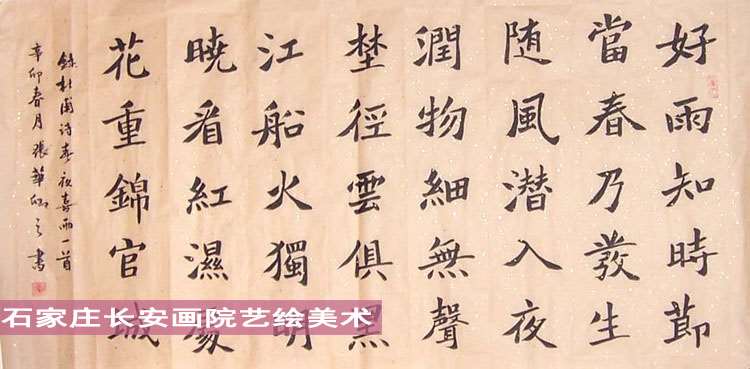 好雨知時節
當春乃發生
随風潛入夜
潤物細無聲
埜徑雲俱黑
江船火獨明
曉看紅濕處
花重錦官城
錄杜甫诗春夜喜雨一首
辛卯春月張華
書
石家庄长安画院艺绘美术